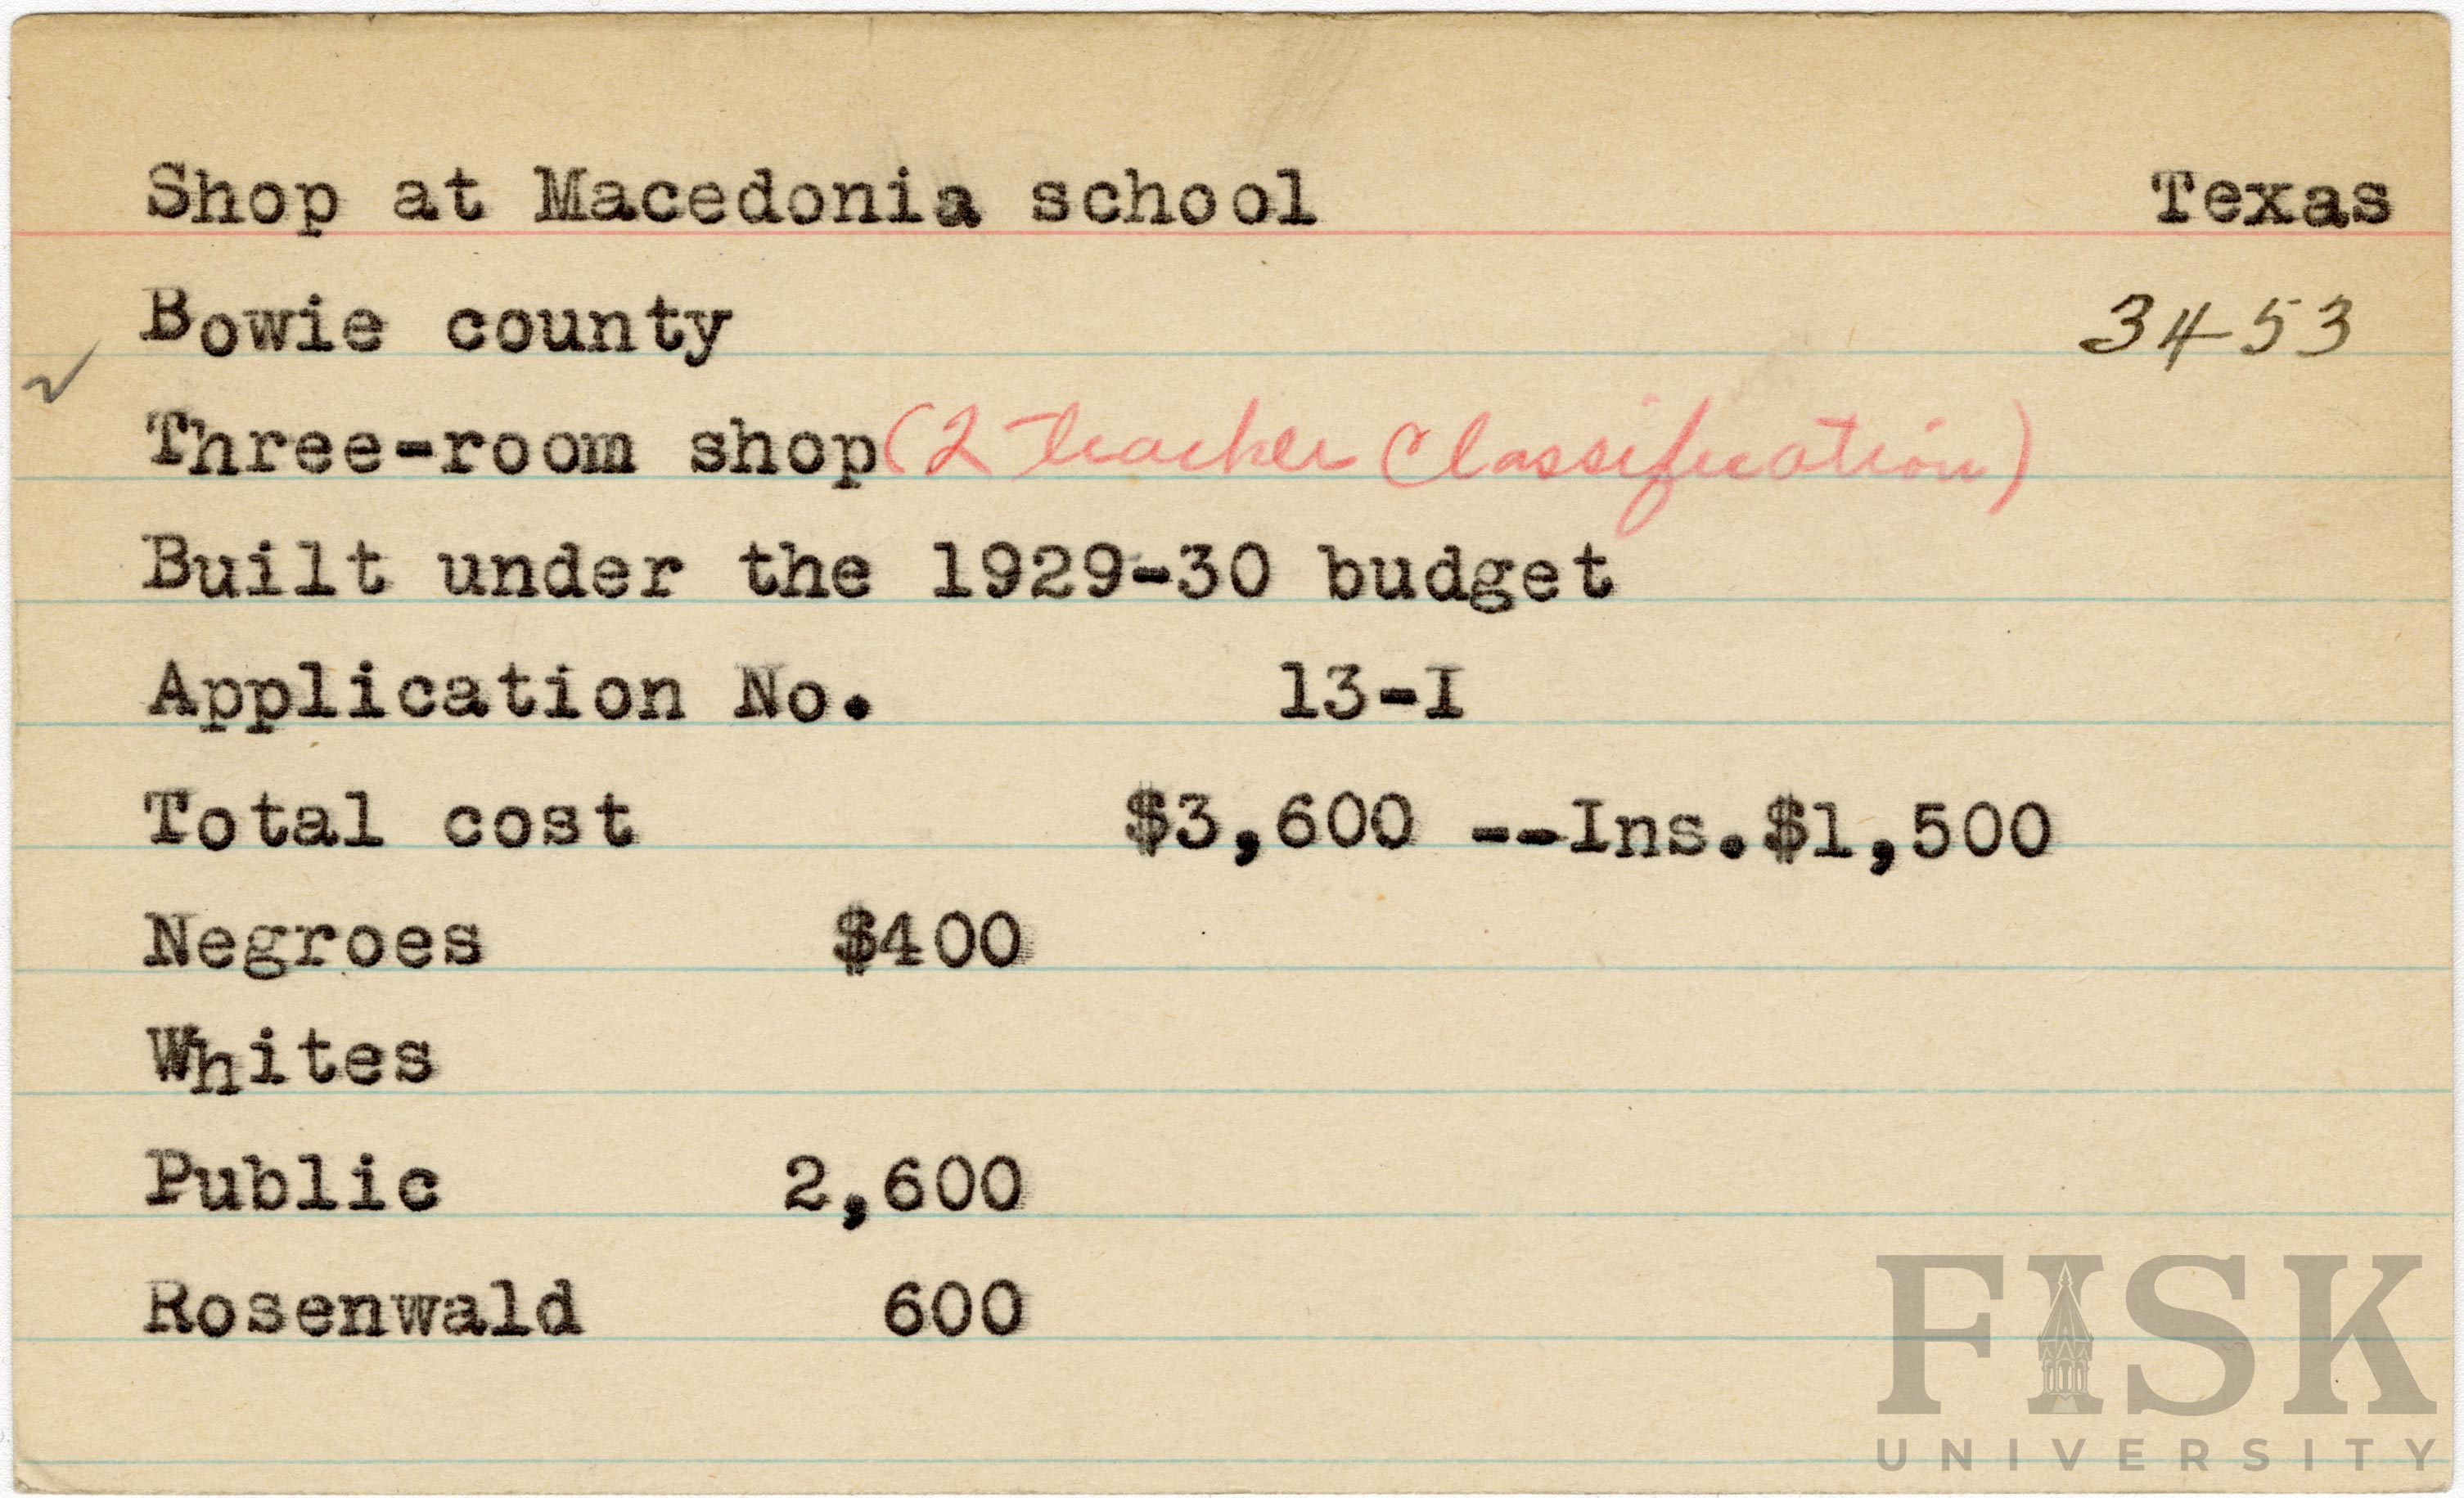 Shop at Macedonia school Texas
Bowie county 3453
✓
Three-room shop (2 teacher Classification)
Built under the 1929-30 budget
Application No. 13-I
Total cost $3,600 --Ins.$1,500
Negroes $400
Whites
Public 2,600
Rosenwald 600
FISK
UNIVERSITY